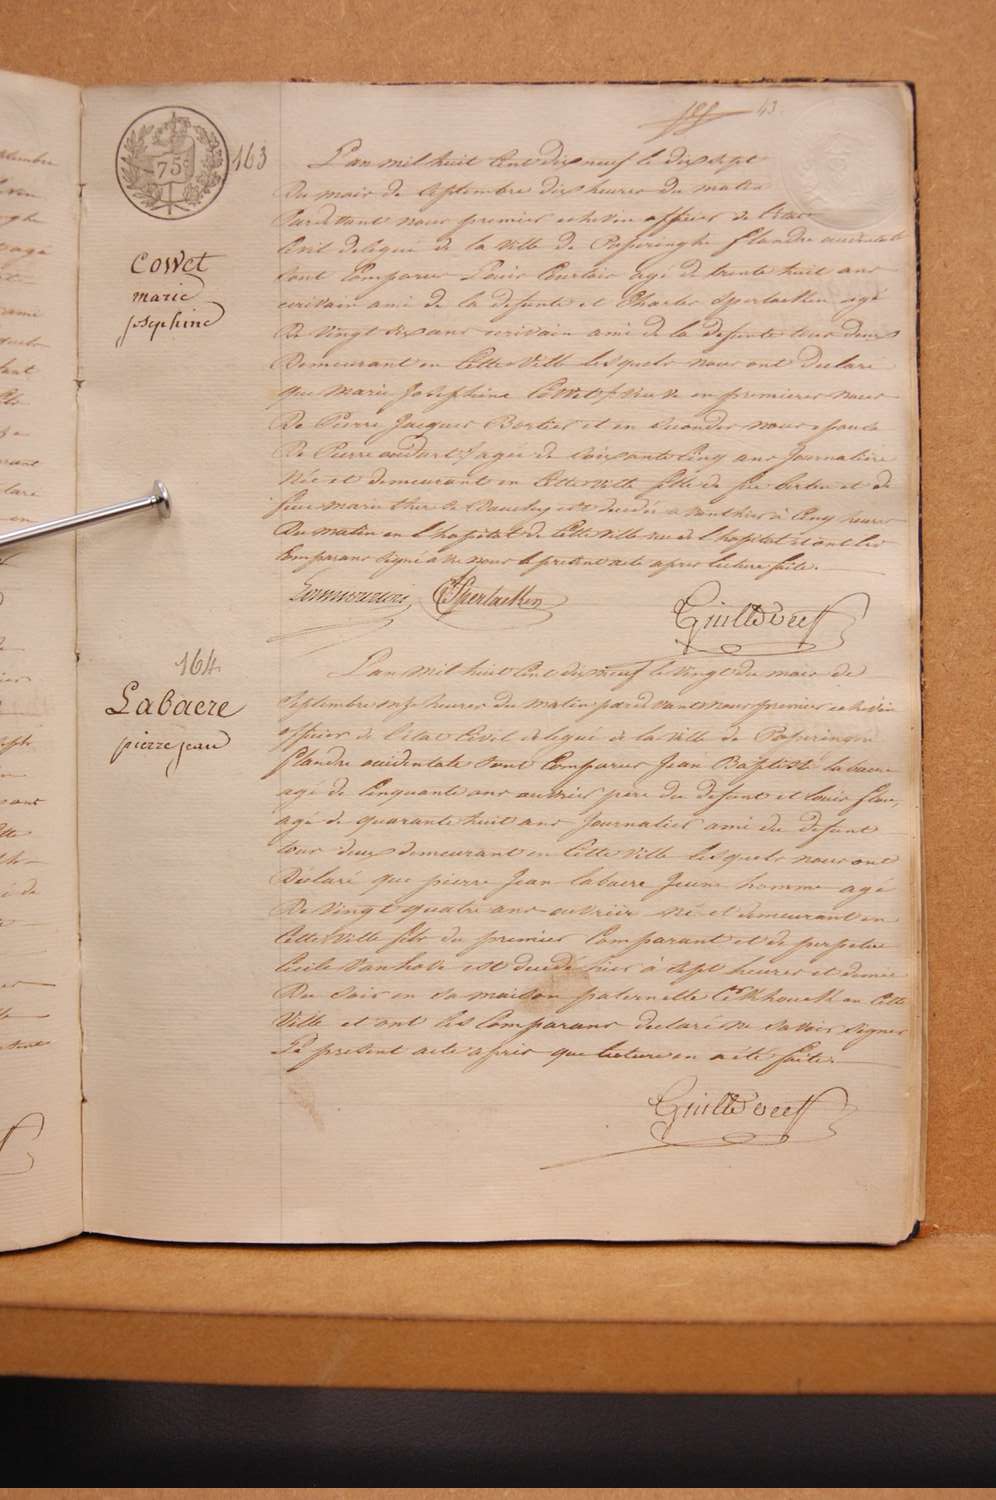 43
75c
163
Cowet
marie
josephine
L'an mil huit Cent dix neuf le dix sept
Du mois de septembre dix heures du matin
Pardevant nous premier echevin officier de l'etat
Civil delegué de la ville de Poperinghe flandre occidentale
sont Comparus Louis agé de trente huit ans
ecrivain ami de la defunte et Charles Sperlaecken agé
De vingt six ans ecrivain ami de la defunte tous deux
Demeurant en Cette ville lesquels nous ont declaré
que Marie Josephine Cowet veuve en premieres noces
De Pierre Jacques Bertier et en secondes noces epouse
De Pierre oudart agée de soixante Cinq ans Journaliere
Née et demeurant en Cette ville fille de feu et de
feue marie therese est decedée avant hier à Cinq heures
Du matin en l'hopital de Cette ville rue de l'hopital et ont les
Comparans signé avec nous le present acte apres lecture faite.
CSperlaecken
164
Labaere
pierre jean
L'an mil huit Cent dix neuf le vingt du mois de
septembre onze heures du matin pardevant nous premier echevin
officier de l'etat Civil delegué de la ville de Poperinghe
flandre occidentale sont Comparus Jean Baptiste labaere
agé de Cinquante ans ouvrier pere du defunt et louis
agé de quarante huit ans Journalier ami du defunt
tous deux demeurant en Cette ville lesquels nous ont
Declaré que pierre Jean labaere Jeune homme agé
De vingt quatre ans ouvrier né et demeurant en
Cette ville fils du premier Comparant et de perpetue
Cecile Vanhove est decedé hier à sept heures et demie
Du soir en sa maison paternelle en Cette
Ville et ont les Comparans declaré ne savoir signer
Le present acte apris que lecture en a été faite.